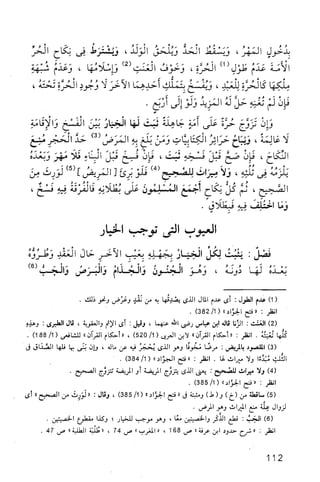 بِدُخُولِ الْمَهْرِ، وَيَسْقُطُ الْحَدُّ وَيُلْحَقُ الْوَلَدُ، وَيُشْتَرَطُ فِى نِكَاحِ الْحُرِّ
الْأَمَةَ عَدَمُ طَوْلِ (1) الْحُرَّةِ، وَخَوْفُ الْعَنَتِ (2) وَإِسْلَامُهَا، وَعَدَمُ شُبْهَةِ
مِلْكِهَا كَالْحُرَّةِ لِلْعَبْدِ، وَيُفْسَخُ بِتَمَلُّكِ أَحَدِهِمَا الْآخَرَ لَا وُجُودِ الْحُرَّةِ تَحْتَهُ،
فَإِنْ لَمْ تُغْنِهِ حَلَّ لَهُ الْمَزِيدُ وَلَوْ إِلَى أَرْبَعٍ.
وَإِنْ تَزَوَّجَ حُرَّةً عَلَى أَمَةٍ جَاهِلَةً ثَبَتَ لَهَا الْخِيَارُ بَيْنَ الْفَسْخِ وَالْإِقَامَةِ
لَا عَالِمَةً، وَيُبَاحُ حَرَائِرُ الْكِتَابِيَّاتِ وَمَنْ بَلَغَ بِهِ الْمَرَضُ (3) حَدَّ الْحَجْرِ مُنِعَ
النِّكَاحَ، فَإِنْ صَحَّ قَبْلَ فَسْخِهِ ثَبَتَ، فَإِنْ فُسِخَ قَبْلَ الْبِنَاءِ فَلَا مَهْرَ وَبَعْدَهُ
يَلْزَمُهُ فِى ثُلُثِهِ، وَلَا مِيرَاثَ لِلصَّحِيحِ (4) فَلَوْ بَرِئَ [الْمَرِيضُ] (5) تُوُرِثَ مِنَ
الصَّحِيحِ، ثُمَّ كُلُّ نِكَاحٍ أَجْمَعَ الْمُسْلِمُونَ عَلَى بُطْلَانِهِ فَالْفُرْقَةُ فِيهِ فَسْخٌ،
وَمَا اخْتُلِفَ فِيهِ فَطَلَاقٌ.
العيوب التى توجب الخيار
فَصْلٌ: يَثْبُتُ لِكُلٍّ الْخِيَارُ بِجَهْلِهِ بِعَيْبِ الْآخَرِ حَالَ الْعَقْدِ وَطُرُوُّهُ
بَعْدَهُ لَهَا دُونَهُ، وَهُوَ الْجُنُونُ وَالْجُذَامُ وَالْبَرَصُ وَالْجَبُّ (6)
(1) عدم الطول: أى عدم المال الذى يصدقها به من نقد وعرض ونحو ذلك.
انظر: «فتح الجواد» (1/ 382).
(2) العنت: الزنا قاله ابن عباس رضى الله عنهما، وقيل: أى الإثم والعقوبة، قال الطبرى: وهذِهِ
كُلُّهَا تُعْنِتُهُ. انظر: «أحكام القرآن» لابن العربى (1/ 520)، «أحكام القرآن» للشافعى (1/ 188).
(3) المقصود بالمريض: مرضًا مخوفًا وهو الذى يُحجَّر فيه عن ماله، وإن بَنَى بها فلها الصَّدَاق فى
الثُّلث مُبَدَّا ولا ميراث لها. انظر: «فتح الجواد» (1/ 384).
(4) ولا ميراث للصحيح: يعنى الذى يتزوج المريضة أو المريضة تتزوج الصحيح.
انظر: «فتح الجواد» (1/ 385).
(5) ساقطة من (خ) و (ط) ومثبتة فى «فتح الجواد» (1/ 385)، وقال: «تُوُرِثَ من الصحيح» أى
لزوال علة منع الميراث وهو المرض.
(6) الجَبُّ: قطع الذَّكر والخصيتين معًا، وهو موجب للخيار؛ وكذا مقطوع الخصيتين.
انظر: «شرح حدود ابن عرفة» ص 168، «المغرب» ص 74، «طُلْبَة الطلبة» ص 47.
112